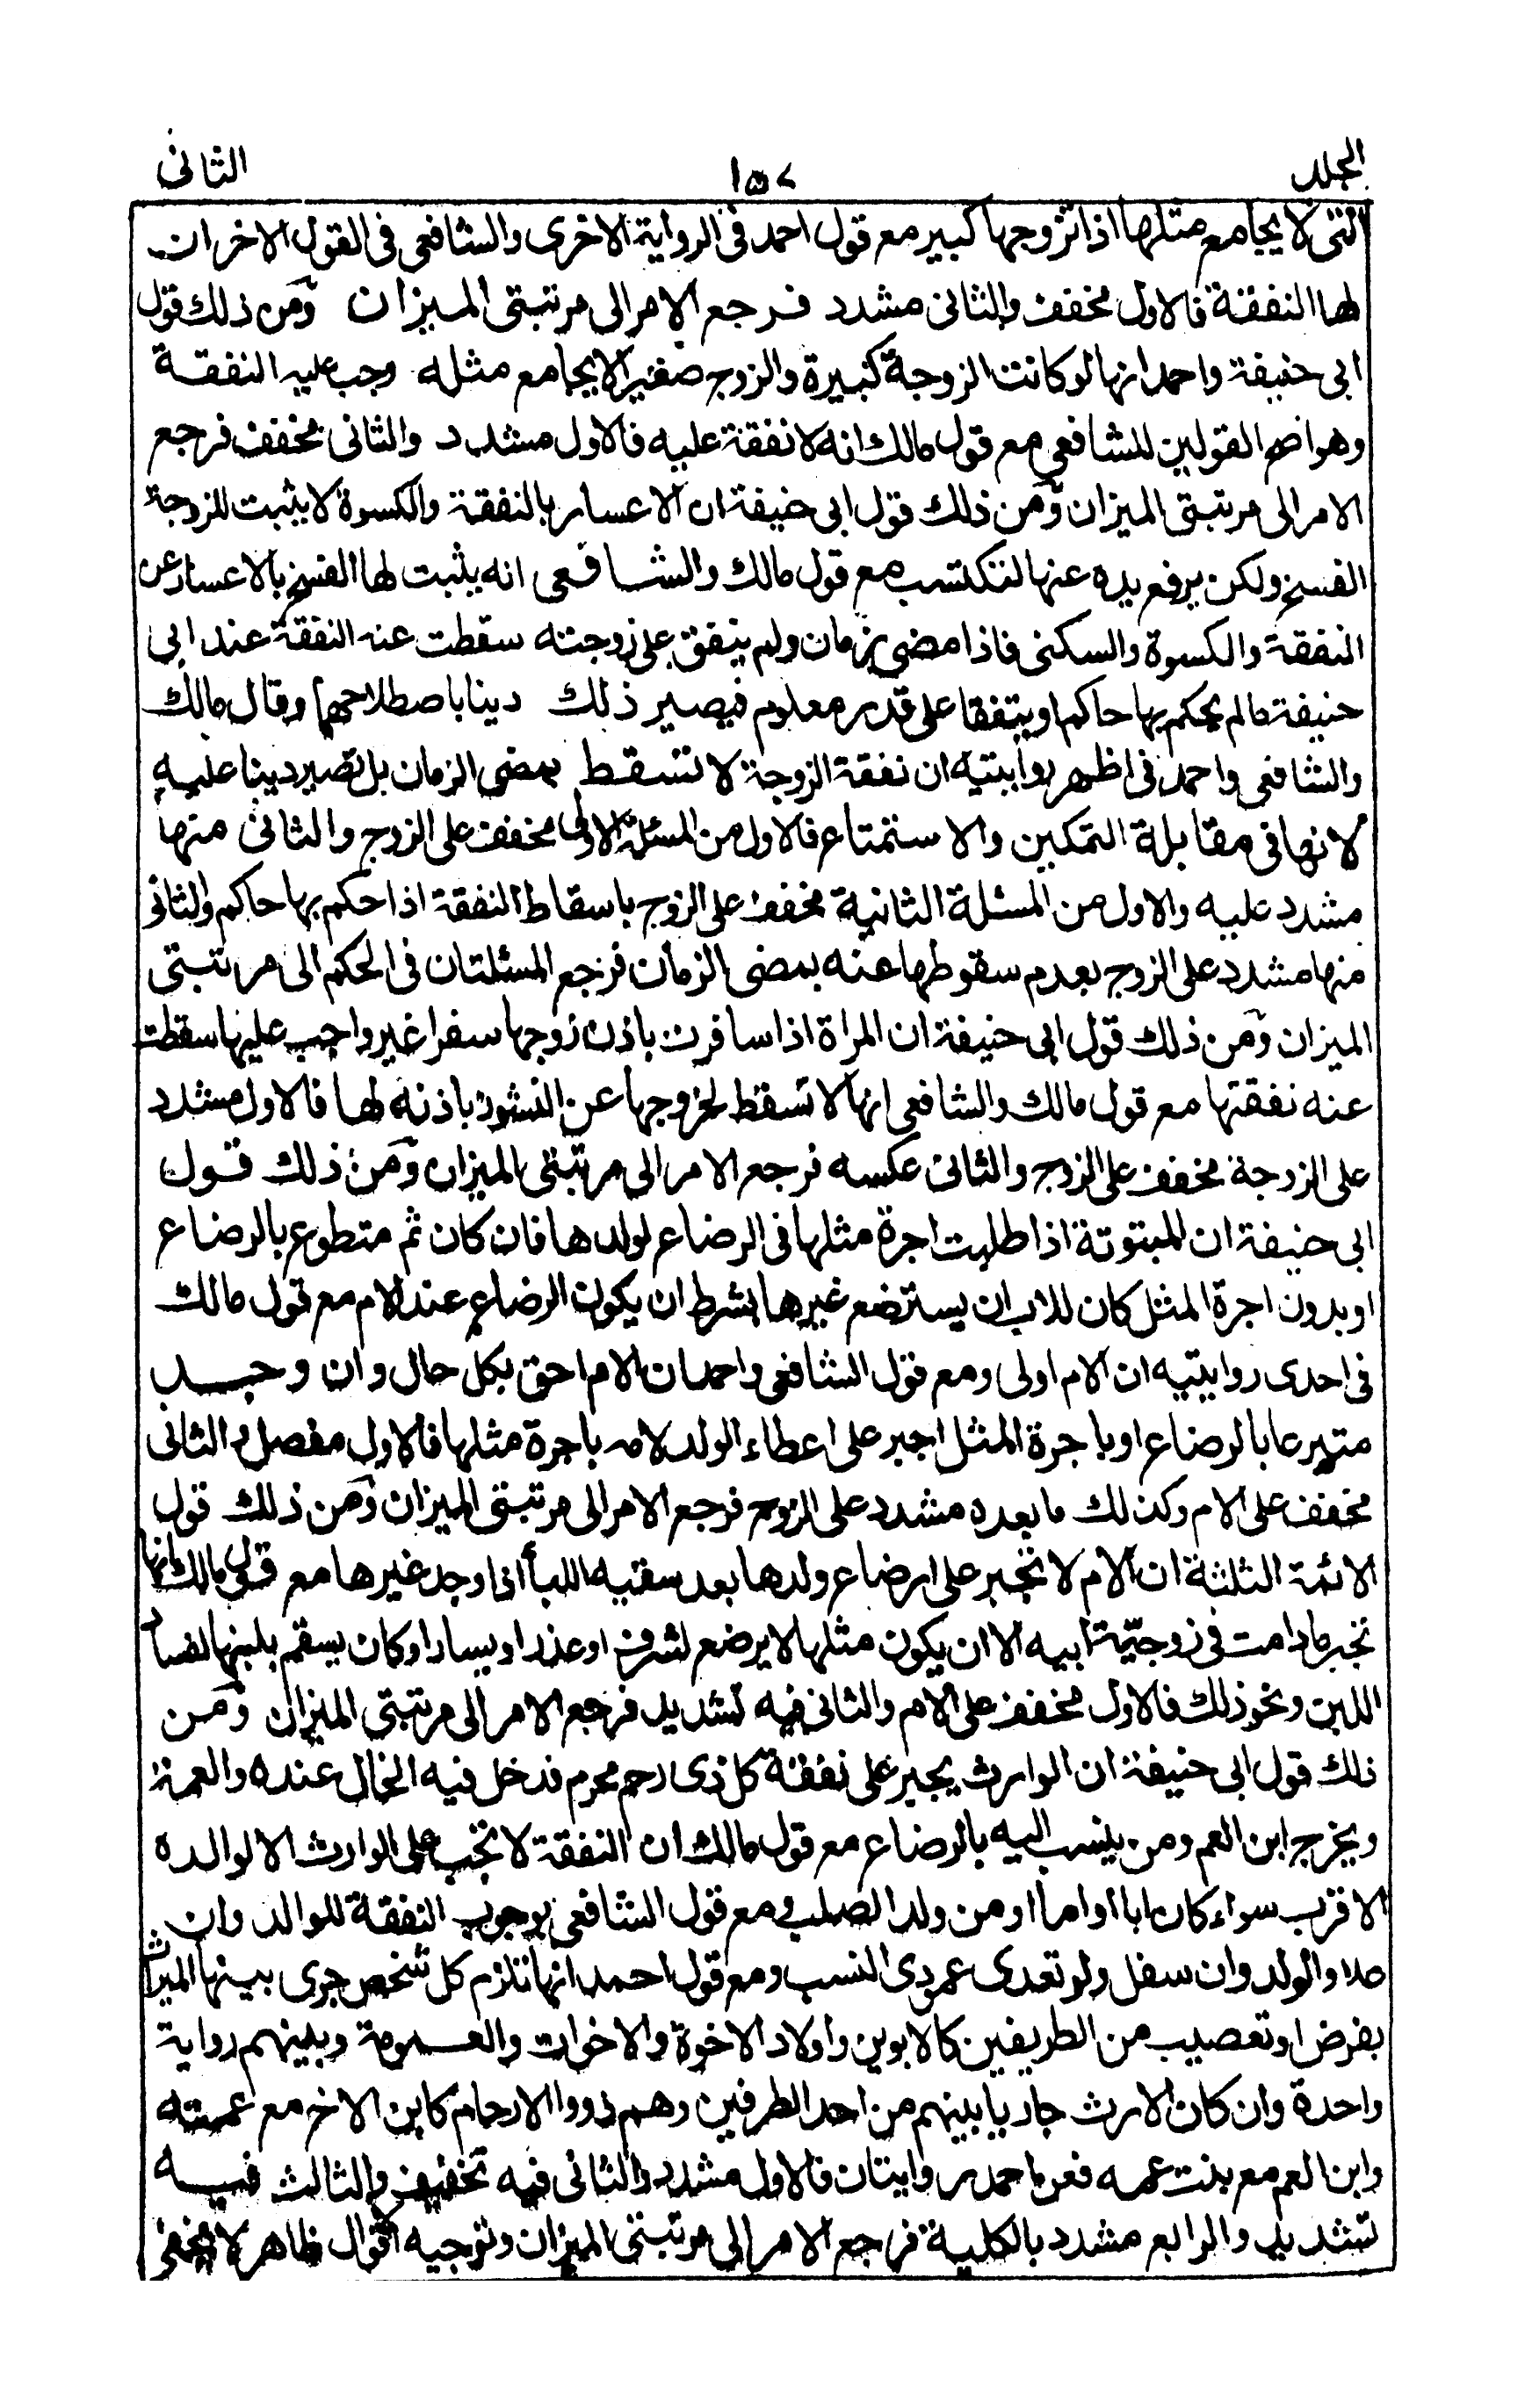 الجلد ١٥٧ الثانى
التى لا يجامع مثلها اذا تزوجها كبير مع قول احمد فى الرواية الاخرى والشافعى فى القول الاخران
لها النفقة فالاول مخفف والثانى مشدد فرجع الامر الى مرتبتى الميزان ومن ذلك قول
ابى حنيفة واحمد انها لو كانت الزوجة كبيرة والزوج صغيرا لا يجامع مثله وجب عليه النفقة
وهو اصح القولين للشافعى مع قول مالك انه لا نفقة عليه فالاول مشدد والثانى مخفف فرجع
الامر الى مرتبتى الميزان ومن ذلك قول ابى حنيفة ان الاعسار بالنفقة والكسوة لا يثبت للزوجة
الفسخ ولكن يرفع يده عنها لتكتسب مع قول مالك والشافعى انه يثبت لها الفسخ بالاعسار عن
النفقة والكسوة والسكنى فاذا مضى زمان ولم ينفق على زوجته سقطت عنه النفقة عند ابى
حنيفة مالم يحكم بها حاكم او يتفقا على قدر معلوم فيصير ذلك دينا باصطلاحهما وقال مالك
والشافعى واحمد فى اظهر روايتيه ان نفقة الزوجة لا تسقط بمضى الزمان بل تصير دينا عليه
لانها فى مقابلة التمكين والاستمتاع فالاول من المسئلة الاولى مخفف على الزوج والثانى منها
مشدد عليه والاول من المسئلة الثانية مخفف على الزوج باسقاط النفقة اذا حكم بها حاكم والثانى
منها مشدد على الزوج بعدم سقوطها عنه بمضى الزمان فرجع المسئلتان فى الحكم الى مرتبتى
الميزان ومن ذلك قول ابى حنيفة ان المراة اذا سافرت باذن زوجها سفرا غير واجب عليها سقطت
عنه نفقتها مع قول مالك والشافعى انها لا تسقط لخروجها عن النشوز باذنه لها فالاول مشدد
على الزوجة مخفف على الزوج والثانى عكسه فرجع الامر الى مرتبتى الميزان ومن ذلك قول
ابى حنيفة ان المبتوتة اذا طلبت اجرة مثلها فى الرضاع لولدها فان كان ثم متطوع بالرضاع
او بدون اجرة المثل كان للاب ان يسترضع غيرها بشرط ان يكون الرضاع عند الام مع قول مالك
فى احدى روايتيه ان الام اولى ومع قول الشافعى واحمد ان الام احق بكل حال وان وجد
متبرعا بالرضاع او باجرة المثل اجبر على اعطاء الولد لامه باجرة مثلها فالاول مفصل والثانى
مخفف على الام وكذلك ما بعده مشدد على الزوج فرجع الامر الى مرتبتى الميزان ومن ذلك قول
الائمة الثلثة ان الام لا تجبر على ارضاع ولدها بعد سقيه اللبأ اذا وجد غيرها مع قول مالك انها
تجبر مادامت فى زوجيّة ابيه الا ان يكون مثلها لا يرضع لشرف او عذر او يسار او كان يسقم بلبنها لفساد
اللبن ونحو ذلك فالاول مخفف على الام والثانى فيه تشديد فرجع الامر الى مرتبتى الميزان ومن
ذلك قول ابى حنيفة ان الوارث يجبر على نفقة كل ذى رحم محرم فدخل فيه الخال عنده والعمة
ويخرج ابن العم ومن ينسب اليه بالرضاع مع قول مالك ان النفقة لا تجب على الوارث الا لوالده
الاقرب سواء كان ابا او اما او من ولد الصلب ومع قول الشافعى بوجوب النفقة للوالد وان
علا والولد وان سفل ولو تعدى عمودى النسب ومع قول احمد انها تلزم كل شخص جرى بينها الميراث
بفرض او تعصيب من الطريفين كالابوين واولاد الاخوة والاخوات والعمومة وبنيهم رواية
واحدة وان كان الارث جاريا بينهم من احد الطرفين وهم ذووا الارحام كابن الاخ مع عمته
وابن العم مع بنت عمه فعن احمد روايتان فالاول مشدد والثانى فيه تخفيف والثالث فيه
تشديد والرابع مشدد بالكلية فرجع الامر الى مرتبتى الميزان وتوجيه الاقوال ظاهر لا يخفى